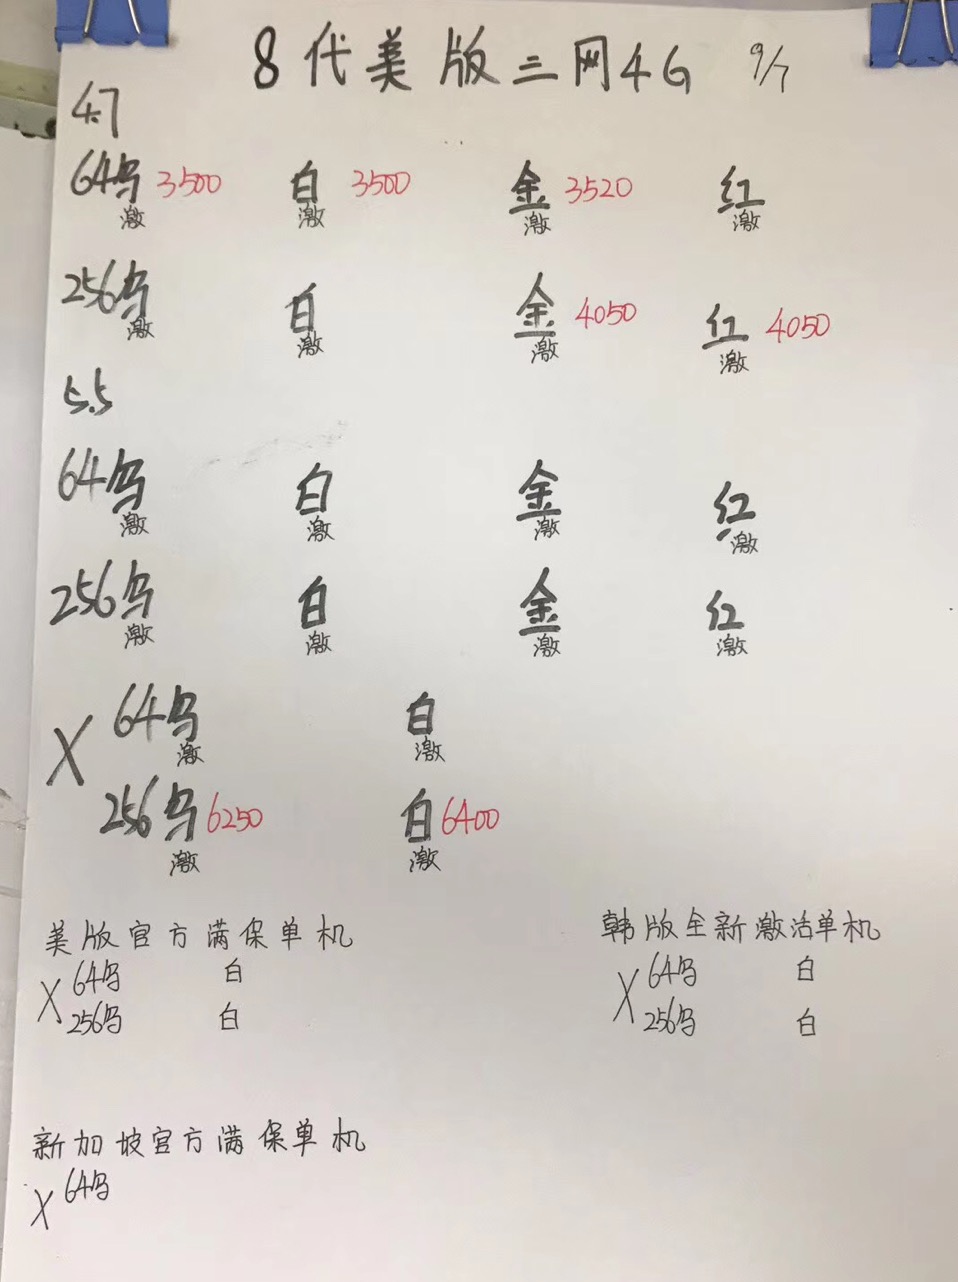 8代美版三网4G 9/7
4.7
64乌 3500 白 3500 金 3520 红
激 激 激 激
256乌 白 金 4050 红 4050
激 激 激 激
5.5
64乌 白 金 红
激 激 激 激
256乌 白 金 红
激 激 激 激
X 64乌 白
激 激
256乌 6250 白 6400
激 激
美版官方满保单机
X 64乌 白
256乌 白
韩版全新激活单机
X 64乌 白
256乌 白
新加坡官方满保单机
X 64乌